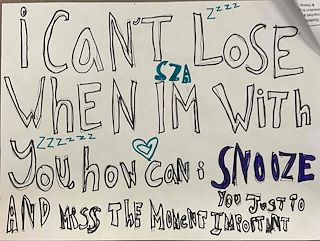 zzzz
i CAN'T LOSE
SZA
WhEN IM With
zzzzzz
You how can i SNOOZE
AND Miss THE MOMENT You JusT to IMPORTANT